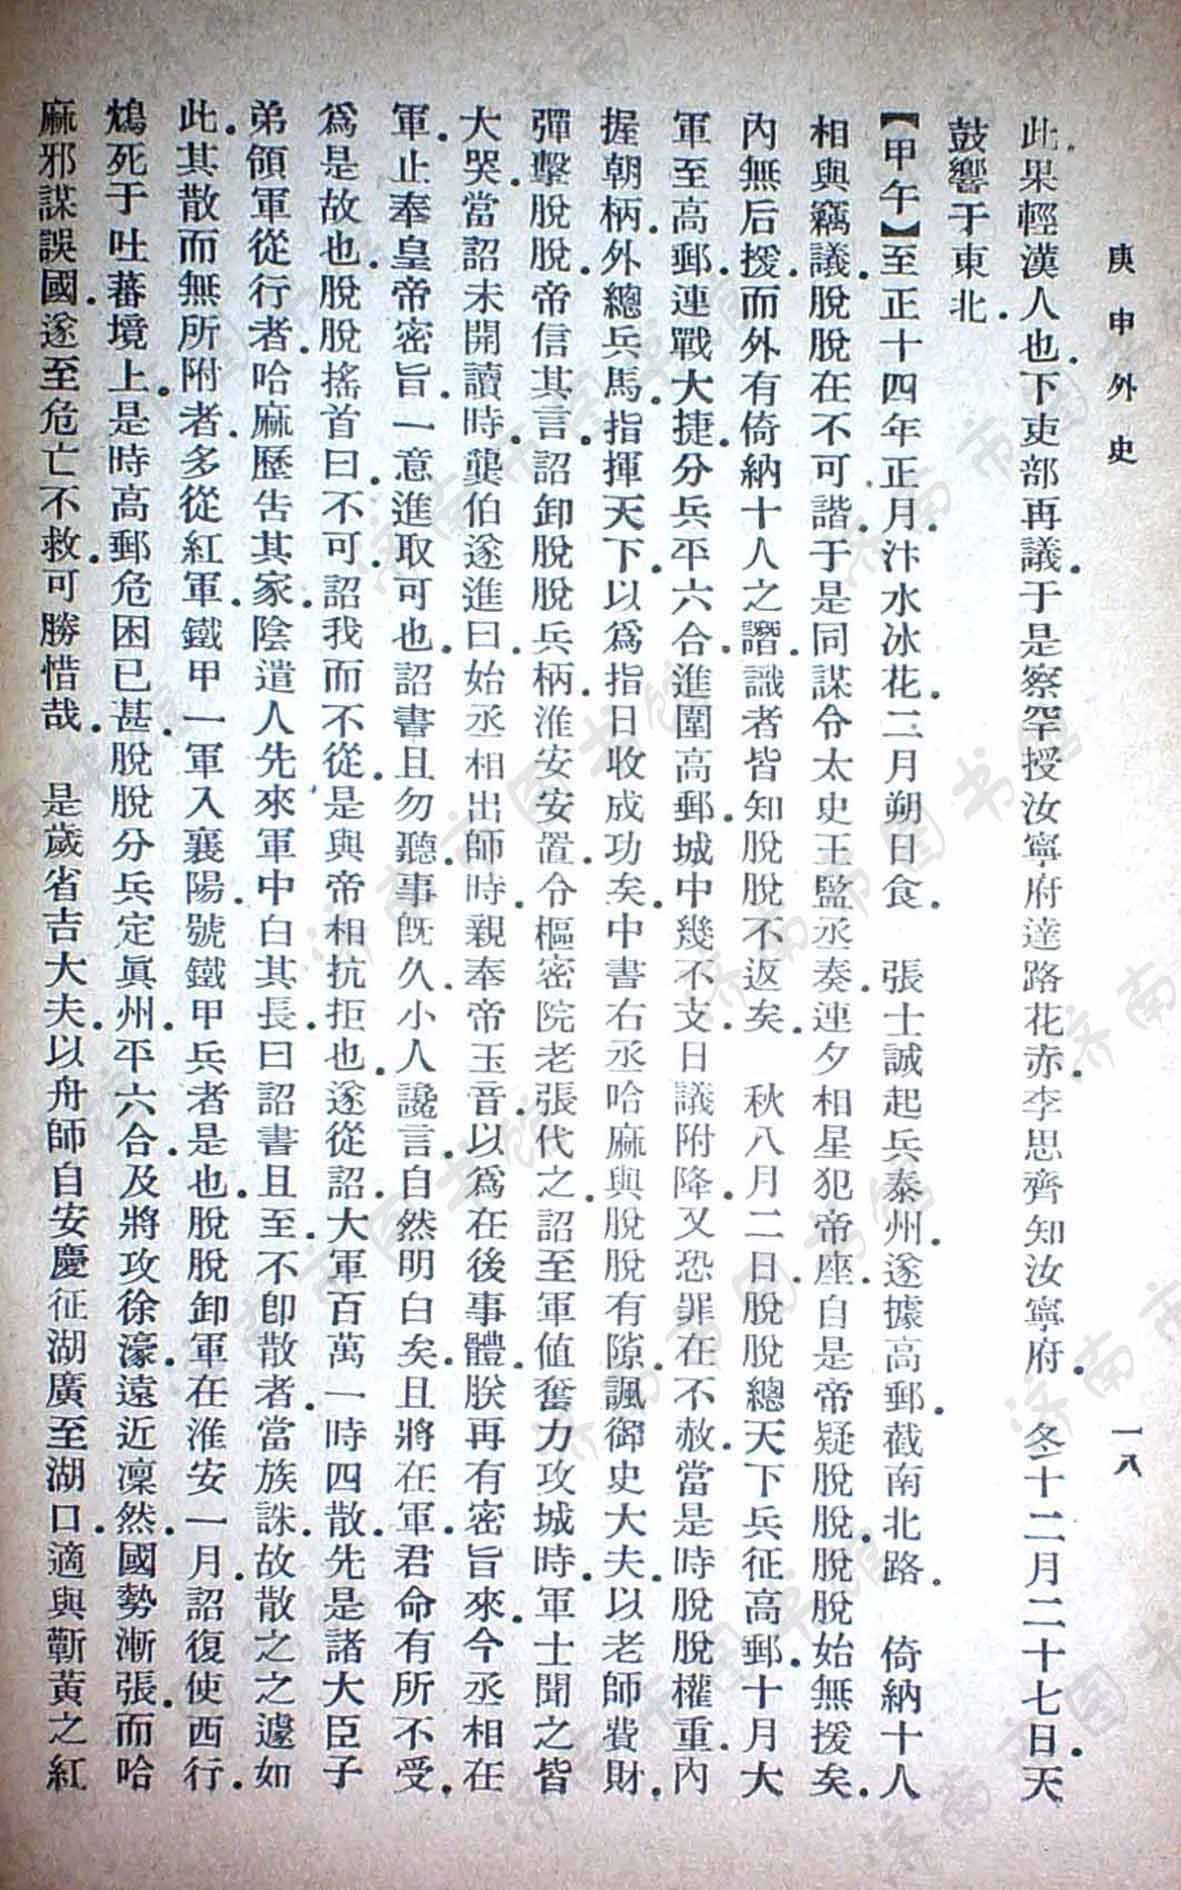 庚申外史
一八
此果輕漢人也.下吏部再議.于是察罕授汝寧府達路花赤.李思齊知汝寧府.　冬十二月二十七日.天
鼓響于東北.
【甲午】至正十四年正月.汴水冰花.二月朔日食.　張士誠起兵泰州.遂據高郵.截南北路.　倚納十人
相與竊議.脫脫在不可諧.于是同謀令太史王監丞奏.連夕相星犯帝座.自是帝疑脫脫.脫脫始無援矣.
內無后援.而外有倚納十人之譖.識者皆知脫脫不返矣.　秋八月二日.脫脫總天下兵征高郵.十月大
軍至高郵.連戰大捷.分兵平六合.進圍高郵.城中幾不支.日議附降.又恐罪在不赦.當是時脫脫權重.內
握朝柄.外總兵馬.指揮天下.以爲指日收成功矣.中書右丞哈麻與脫脫有隙.諷御史大夫.以老師費財.
彈擊脫脫.帝信其言.詔卸脫脫兵柄.淮安安置.令樞密院老張代之.詔至軍值奮力攻城時.軍士聞之皆
大哭.當詔未開讀時.龔伯遂進曰.始丞相出師時.親奉帝玉音.以爲在後事體.朕再有密旨來.今丞相在
軍.止奉皇帝密旨.一意進取可也.詔書且勿聽.事旣久.小人讒言.自然明白矣.且將在軍.君命有所不受.
爲是故也.脫脫搖首曰.不可.詔我而不從.是與帝相抗拒也.遂從詔.大軍百萬一時四散.先是諸大臣子
弟領軍從行者.哈麻歷告其家.陰遣人先來軍中白其長曰.詔書且至.不卽散者.當族誅.故散之之遽如
此.其散而無所附者.多從紅軍.鐵甲一軍入襄陽.號鐵甲兵者是也.脫脫卸軍在淮安一月.詔復使西行.
鴆死于吐蕃境上.是時高郵危困已甚.脫脫分兵定眞州.平六合.及將攻徐濠.遠近凜然.國勢漸張.而哈
麻邪謀誤國.遂至危亡不救.可勝惜哉.　是歲省吉大夫.以舟師自安慶征湖廣至湖口.適與蘄黃之紅